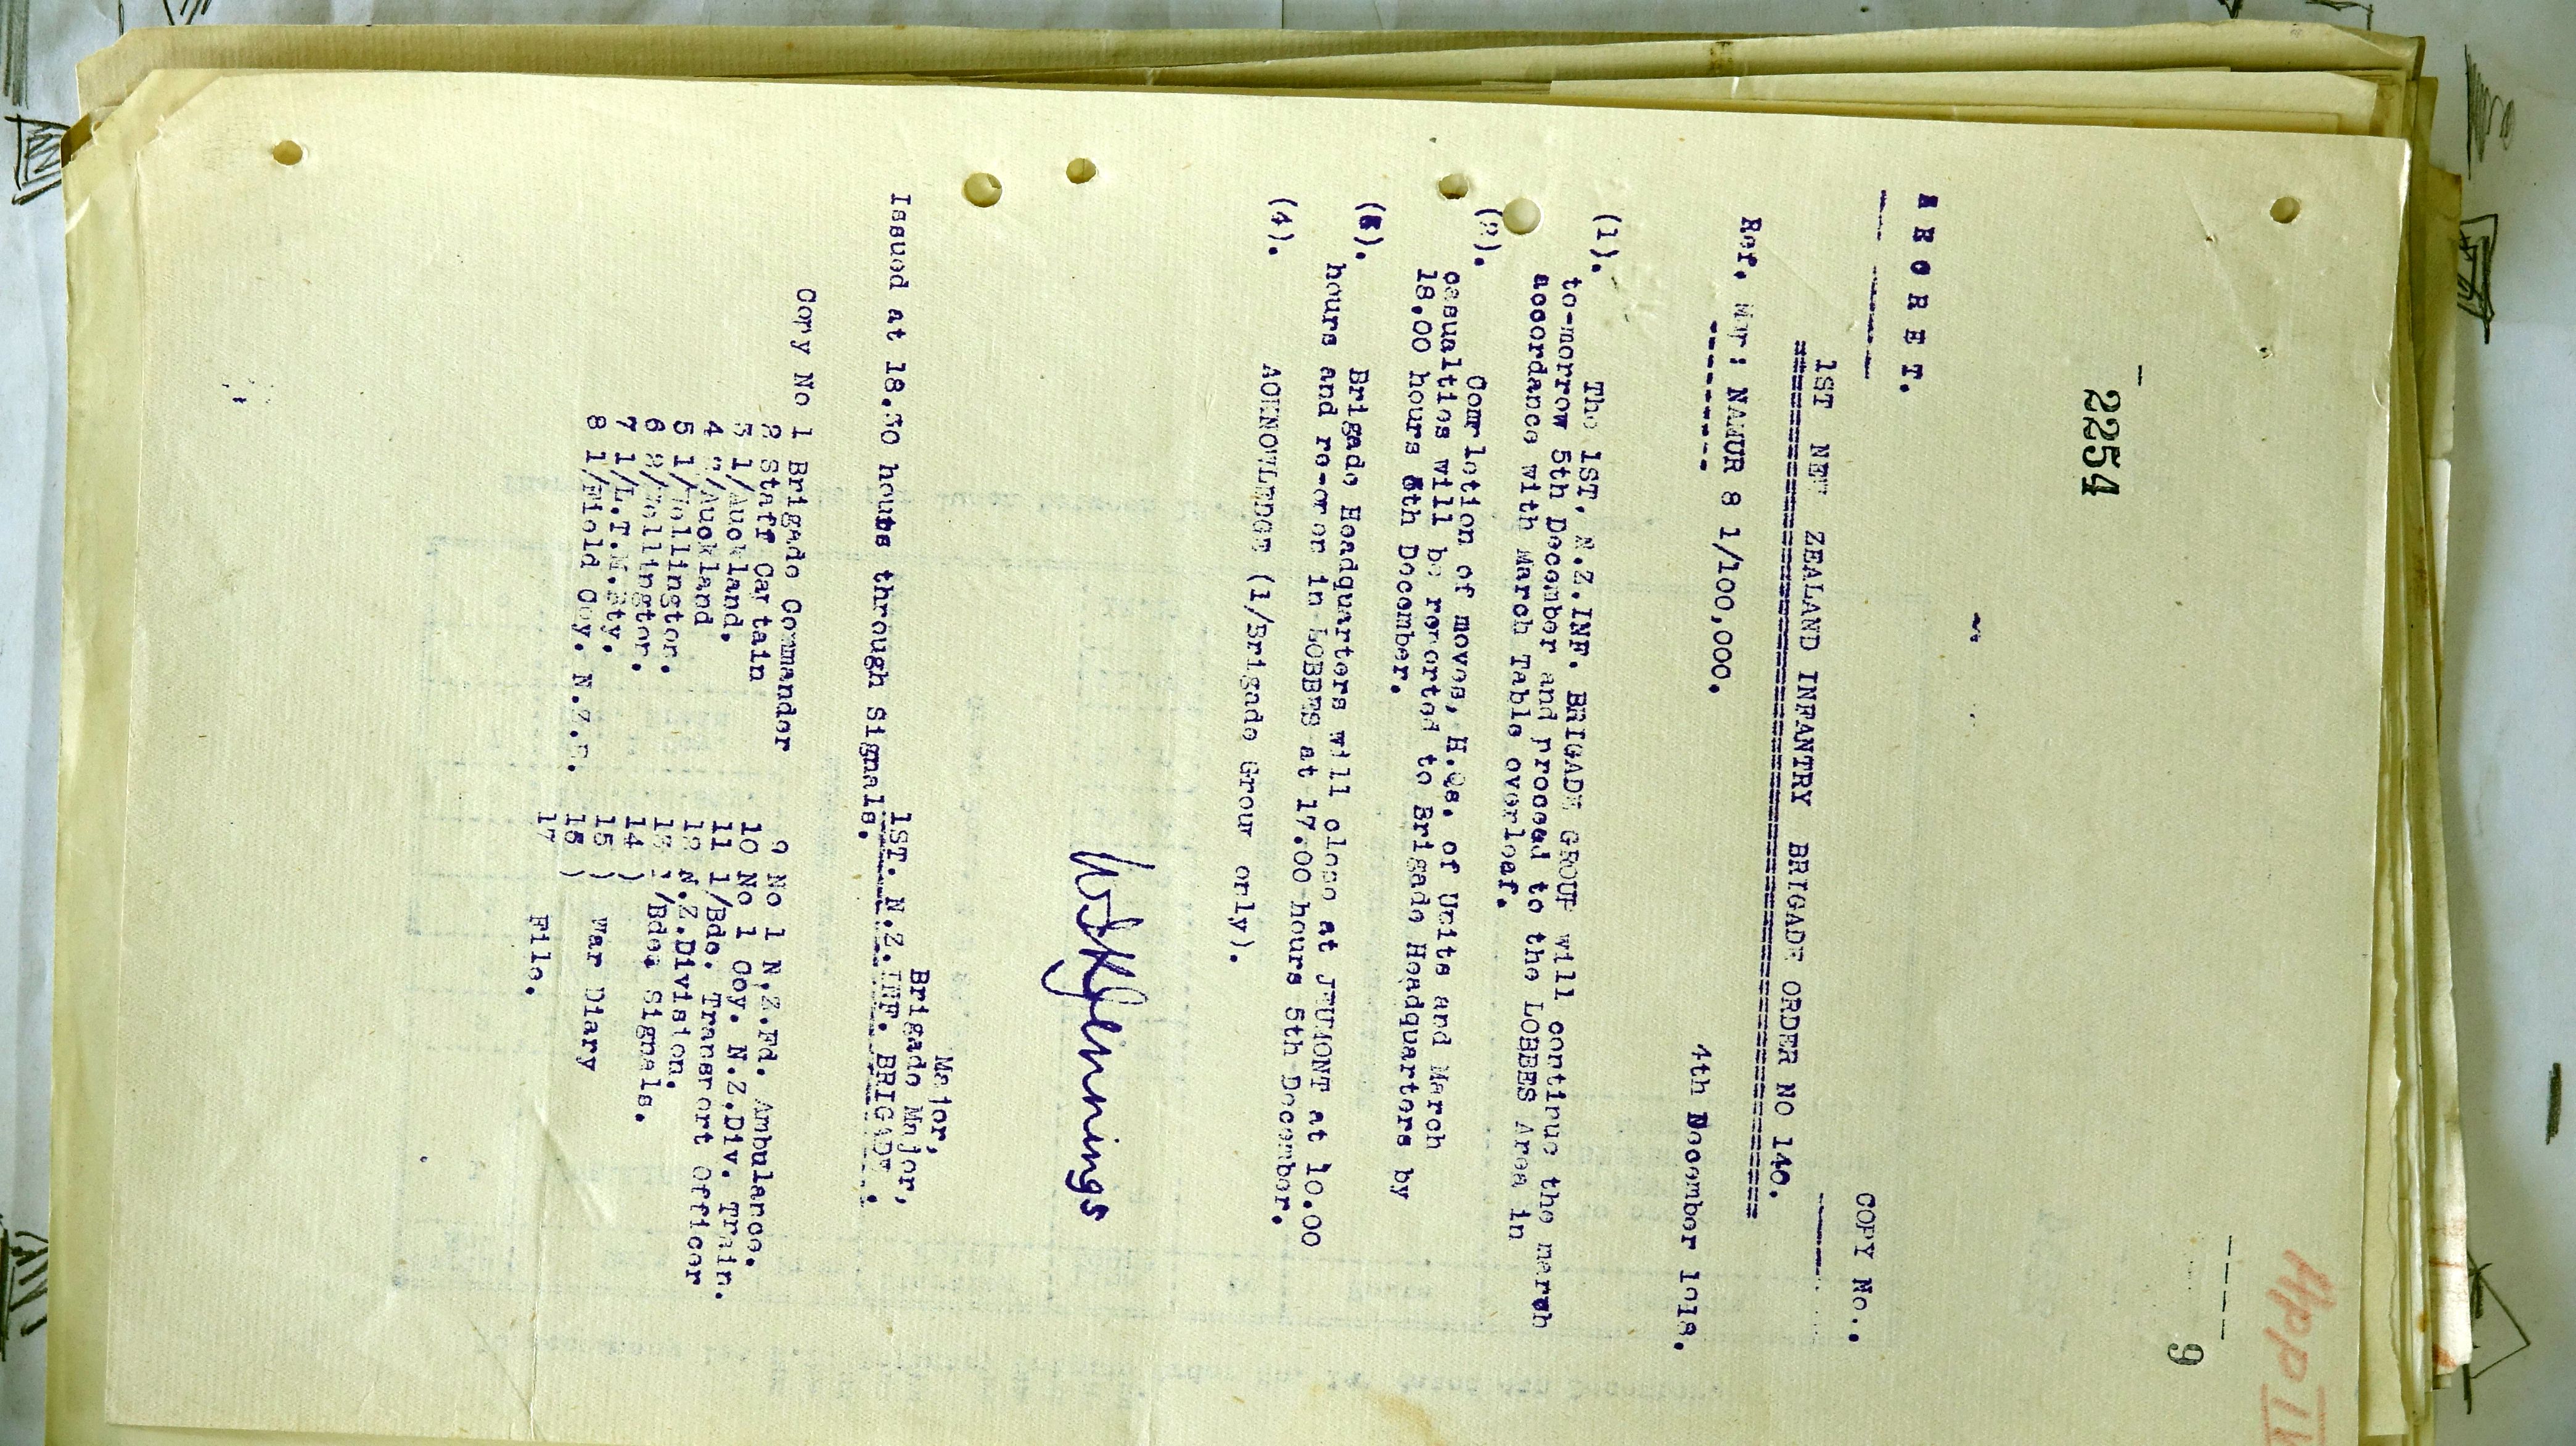 2254
9
S E C R E T.
COPY No..
1ST NEW ZEALAND INFANTRY BRIGADE ORDER NO 140.
4th December 1918.
Ref. Map: NAMUR 8 1/100,000.
(1). The 1ST. N.Z.INF. BRIGADE GROUP will continue the march
to-morrow 5th December and proceed to the LOBBES Area in
accordance with March Table overleaf.
(2). Completion of moves, H.Qs. of Units and March
casualties will be reported to Brigade Headquarters by
18.00 hours 5th December.
(3). Brigade Headquarters will close at JEUMONT at 10.00
hours and re-open in LOBBES at 17.00 hours 5th December.
(4). ACKNOWLEDGE (1/Brigade Group only).
W S Jennings
Major,
Brigade Major,
1ST. N.Z.INF. BRIGADE.
Issued at 18.30 hours through Signals.
Copy No 1 Brigade Commander
2 Staff Captain
3 1/Auckland.
4 2/Auckland
5 1/Wellington.
6 2/Wellington.
7 1/L.T.M.Bty.
8 1/Field Coy. N.Z.E.
9 No 1 N.Z.Fd. Ambulance.
10 No 1 Coy. N.Z.Div. Train.
11 1/Bde. Transport Officer
12 N.Z.Division.
13 1/Bde. Signals.
14 )
15 ) War Diary
16 )
17 File.